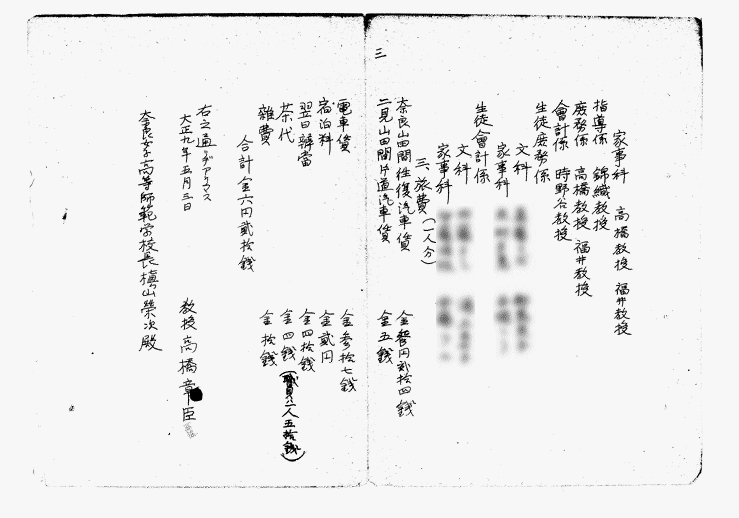 三
家事科 高橋教授 福井教授
指導係 錦織教授
庶務係 高橋教授 福井教授
會計係 時野谷教授
生徒庶務係
文科
家事科
生徒會計係
文科
家事科
三、旅費(一人分)
奈良山田間往復汽車賃 金參円弐拾四錢
二見山田間片道汽車賃 金五錢
電車賃 金参拾七錢
宿泊料 金貳円
翌日辨當 金四拾錢
茶代 金四錢(職員ハ一人五拾錢)
雜費 金拾錢
合計金六円貳拾錢
右之通リデアリマス
大正九年五月三日
教授 高橋章臣
奈良女子高等師範学校長槇山榮次殿